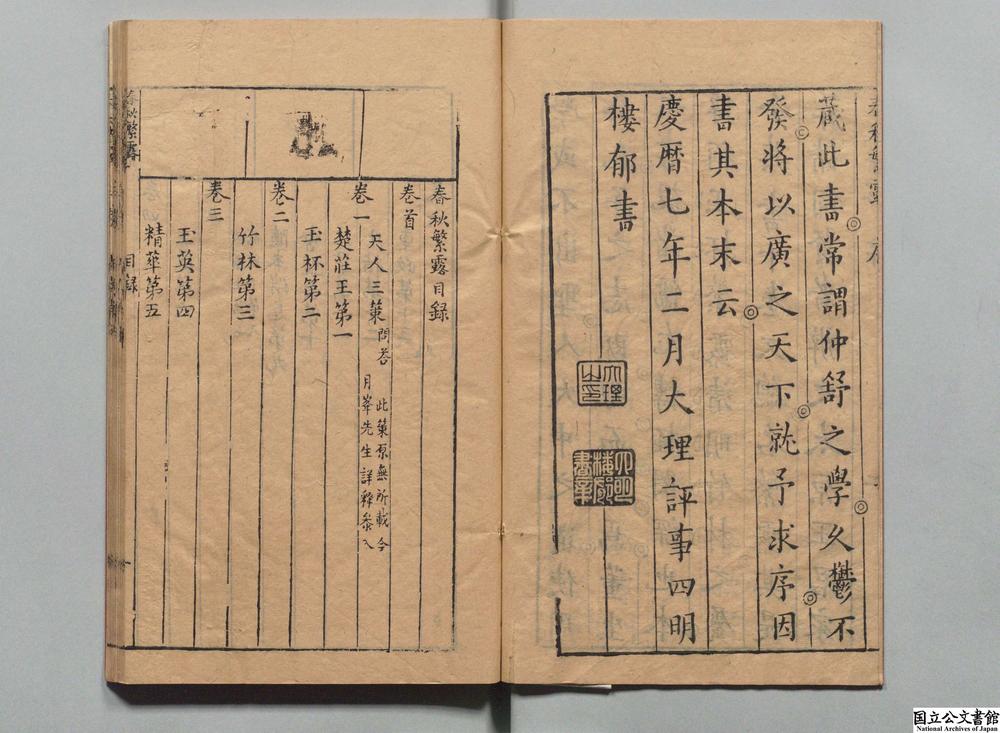 藏此書常謂仲舒之學久鬱不
發將以廣之天下就予求序因
書其本末云
慶曆七年二月大理評事四明
樓郁書
大理
之印
四明
樓郁
書章
春秋繁露目録
卷首
天人三策 問答 此策原無所載今
月峯先生詳釋參入
卷一
楚莊王第一
玉杯第二
卷二
竹林第三
卷三
玉英第四
精華第五
春秋繁露
目録
国立公文書館
National Archives of Japan